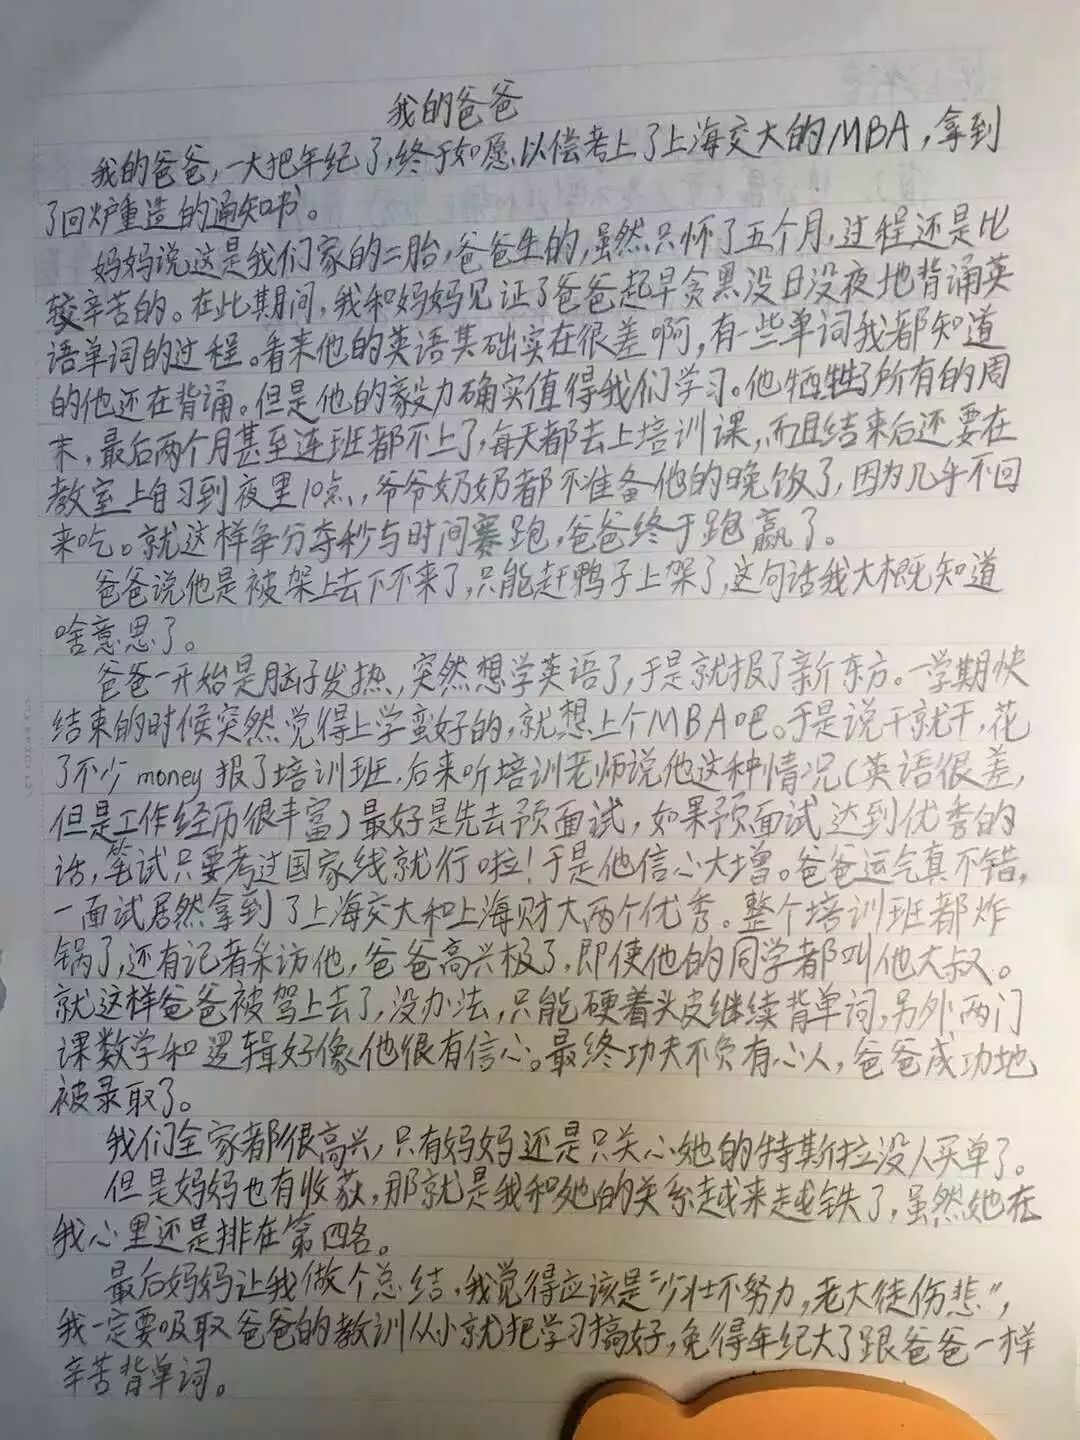 我的爸爸
我的爸爸，一大把年纪了，终于如愿以偿考上了上海交大的MBA，拿到
了回炉重造的通知书。
妈妈说这是我们家的二胎，爸爸生的，虽然只怀了五个月，过程还是比
较辛苦的。在此期间，我和妈妈见证了爸爸起早贪黑没日没夜地背诵英
语单词的过程。看来他的英语基础实在很差啊，有一些单词我都知道
的他还在背诵。但是他的毅力确实值得我们学习。他牺牲了所有的周
末，最后两个月甚至连班都不上了，每天都去上培训课，而且结束后还要在
教室上自习到夜里10点，爷爷奶奶都不准备他的晚饭了，因为几乎不回
来吃。就这样争分夺秒与时间赛跑，爸爸终于跑赢了。
爸爸说他是被架上去下不来了，只能赶鸭子上架了，这句话我大概知道
啥意思了。
爸爸一开始是脑子发热，突然想学英语了，于是就报了新东方。一学期快
结束的时候突然觉得上学蛮好的，就想上个MBA吧。于是说干就干，花
了不少money报了培训班，后来听培训老师说他这种情况(英语很差，
但是工作经历很丰富)最好是先去预面试，如果预面试达到优秀的
话，笔试只要考过国家线就行啦！于是他信心大增。爸爸运气真不错，
一面试居然拿到了上海交大和上海财大两个优秀。整个培训班都炸
锅了，还有记者采访他，爸爸高兴极了，即使他的同学都叫他大叔。
就这样爸爸被驾上去了，没办法，只能硬着头皮继续背单词，另外两门
课数学和逻辑好像他很有信心。最终功夫不负有心人，爸爸成功地
被录取了。
我们全家都很高兴，只有妈妈还是只关心她的特斯拉没人买单了。
但是妈妈也有收获，那就是我和她的关系越来越铁了，虽然她在
我心里还是排在第四名。
最后妈妈让我做个总结，我觉得应该是“少壮不努力，老大徒伤悲”，
我一定要吸取爸爸的教训从小就把学习搞好，免得年纪大了跟爸爸一样
辛苦背单词。